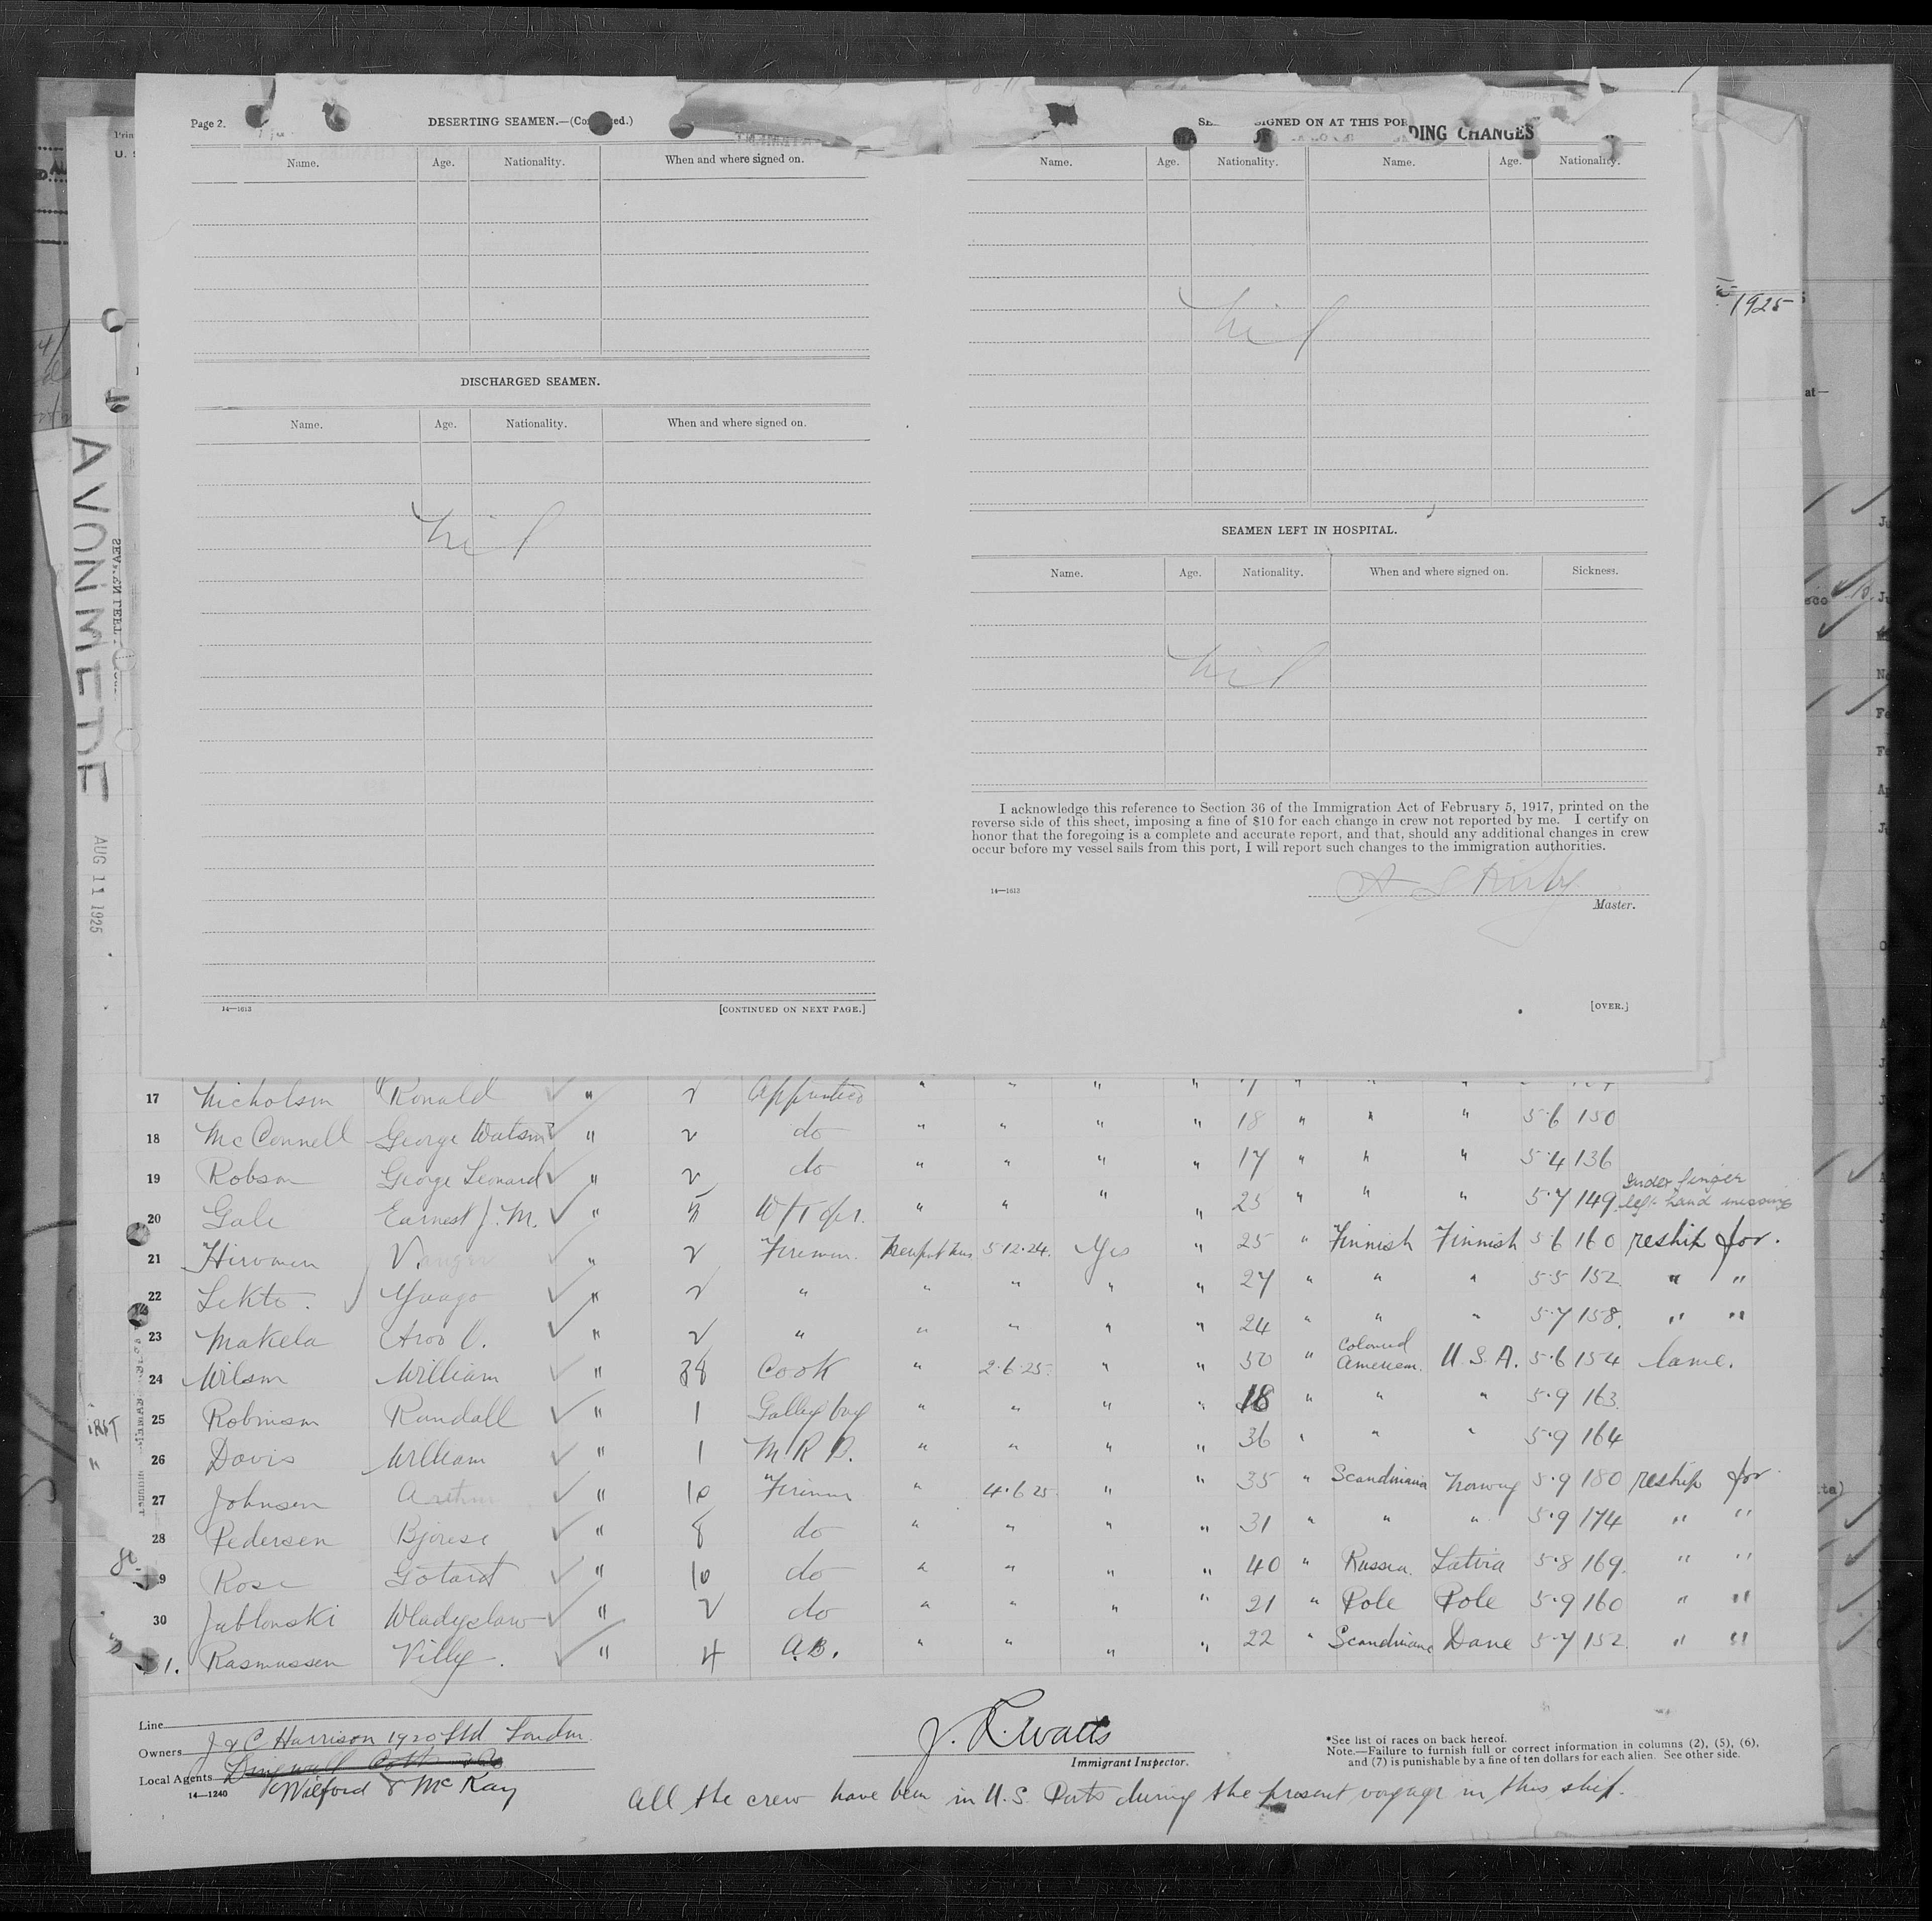 Page 2.
DESERTING SEAMEN.—(Con ed.)
Name. Age. Nationality. When and where signed on.
DISCHARGED SEAMEN.
Name. Age. Nationality. When and where signed on.
nil
14—1613 [CONTINUED ON NEXT PAGE.]
SIGNED ON AT THIS POR
DING CHANGES
Name. Age. Nationality. Name. Age. Nationality.
nil
SEAMEN LEFT IN HOSPITAL.
Name. Age. Nationality. When and where signed on. Sickness.
nil
I acknowledge this reference to Section 36 of the Immigration Act of February 5, 1917, printed on the
reverse side of this sheet, imposing a fine of $10 for each change in crew not reported by me. I certify on
honor that the foregoing is a complete and accurate report, and that, should any additional changes in crew
occur before my vessel sails from this port, I will report such changes to the immigration authorities.
14—1613
Master.
[OVER.]
1925
at—
AVONMEDE
AUG 11 1925
17 Nicholson Ronald " 2 Apprentice " " " "
18 McConnell George Watson " 2 do " " " " 18 " " " 5·6 150
19 Robson George Leonard " 2 do " " " " 17 " " " 5·4 136
20 Gale Earnest J. M. " 5 W/T opr. " " " " 25 " " " 5·7 149 finger
left hand missing
21 Hirvonen " 2 Fireman 5·12·24 Yes " 25 " Finnish Finnish 5·6 160 reship for.
22 Lekto. " 2 " " " " " 27 " " " 5·5 152 " "
23 Makela " 2 " " " " " 24 " " " 5·7 158. " "
24 Wilson William " 38 Cook " 2·6·25 " " 50 " Colored
American. U.S.A. 5·6 154 lame.
25 Robinson Randall " 1 Galley boy " " " " 18 " " " 5·9 163
26 Davis William " 1 M R S. " " " " 36 " " " 5·9 164
27 Johnsen " 10 Fireman " 4·6·25 " " 35 " Scandinavia Norway 5·9 180 reship for
28 Pedersen " 8 do " " " 31 " " " 5·9 174 " "
9 Rose Gotard " 10 do " " " " 40 " Russia. Latvia 5·8 169. " "
30 Jablonski Wladyslaw " 2 do " " " " 21 " Pole Pole 5·9 160 " "
31. Rasmussen Villy. " 4 A.B. " " " " 22 " Scandinavia Dane 5·7 152 " "
Line
Owners J & C Harrison 1920 Ltd London
Local Agents
Wilford & McKay
14—1240
J. R. Watts
Immigrant Inspector.
*See list of races on back hereof.
Note.—Failure to furnish full or correct information in columns (2), (5), (6),
and (7) is punishable by a fine of ten dollars for each alien. See other side.
All the crew have been in U.S. Ports during the present voyage in this ship.